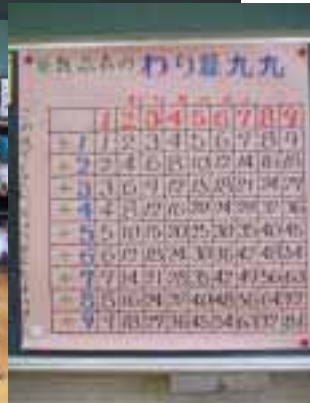 わり算九九
1 2 3 4 5 6 7 8 9
1 1 2 3 4 5 6 7 8 9
2 2 4 6 8 10 12 14 16 18
3 3 6 9 12 15 18 21 24 27
4 4 8 12 16 20 24 28 32 36
5 5 10 15 20 25 30 35 40 45
6 6 12 18 24 30 36 42 48 54
7 7 14 21 28 35 42 49 56 63
8 8 16 24 32 40 48 56 64 72
9 9 18 27 36 45 54 63 72 81